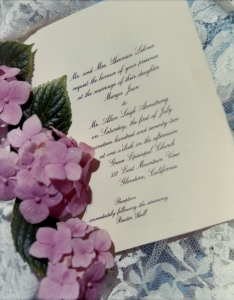 Mr. and Mrs. Sherman
request the honour of your presence
at the marriage of their daughter
Margo Jean
to
Mr. Allen Leigh Armstrong
on Saturday, the first of July
nineteen hundred and seventy two
at one o'clock in the afternoon
Grace Episcopal Church
555 East Mountain View
Glendora, California
Reception
immediately following the ceremony
Hall